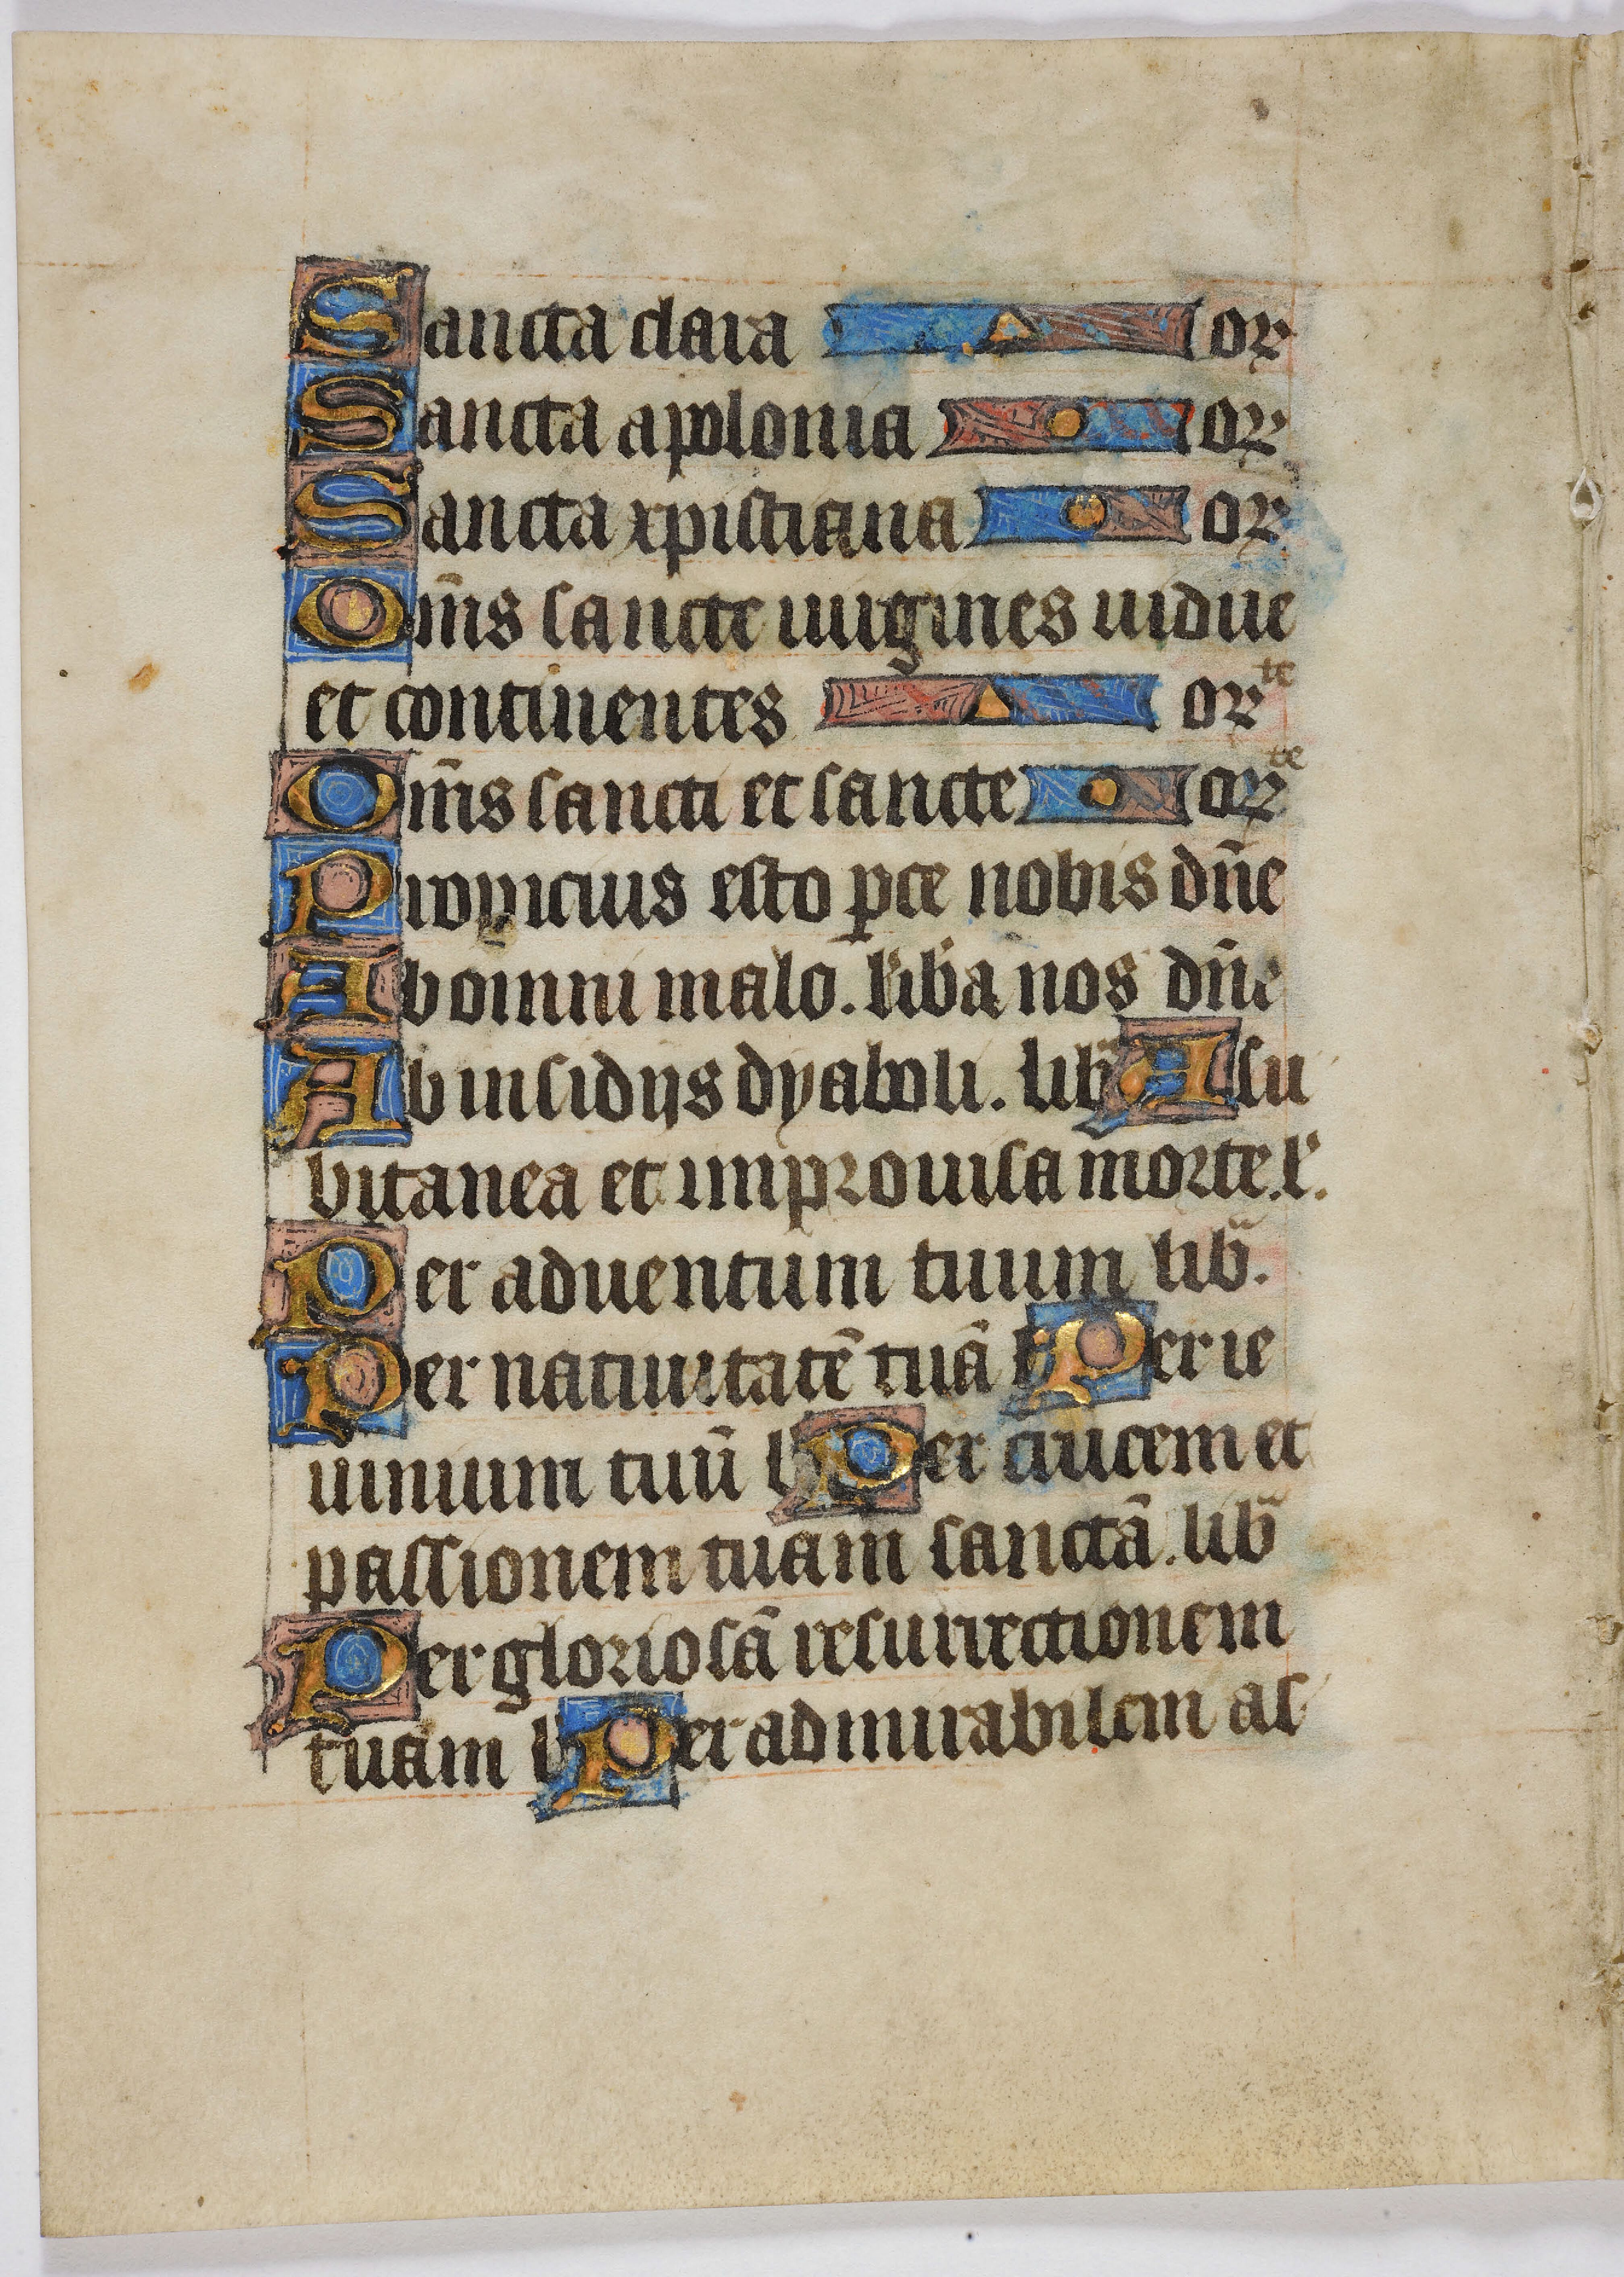 Sancta clara or
Sancta apolonia or
Sancta xpistiana or
Om̄s sancte uirgines uidue
et continentes orte
Om̄s sancti et sancte orte
Propicius esto pce nobis dn̄e
Ab omni malo. lib̄a nos dn̄e
Ab insidijs dyaboli. lib̄ A su
bitanea et improuisa morte. l'.
Per aduentum tuum lib̄.
Per natiuitatē tuā l Per ie
iunium tuū l Per crucem et
passionem tuam sanctā. lib̄
Per gloriosā resurrectionem
tuam l Per admirabilem as